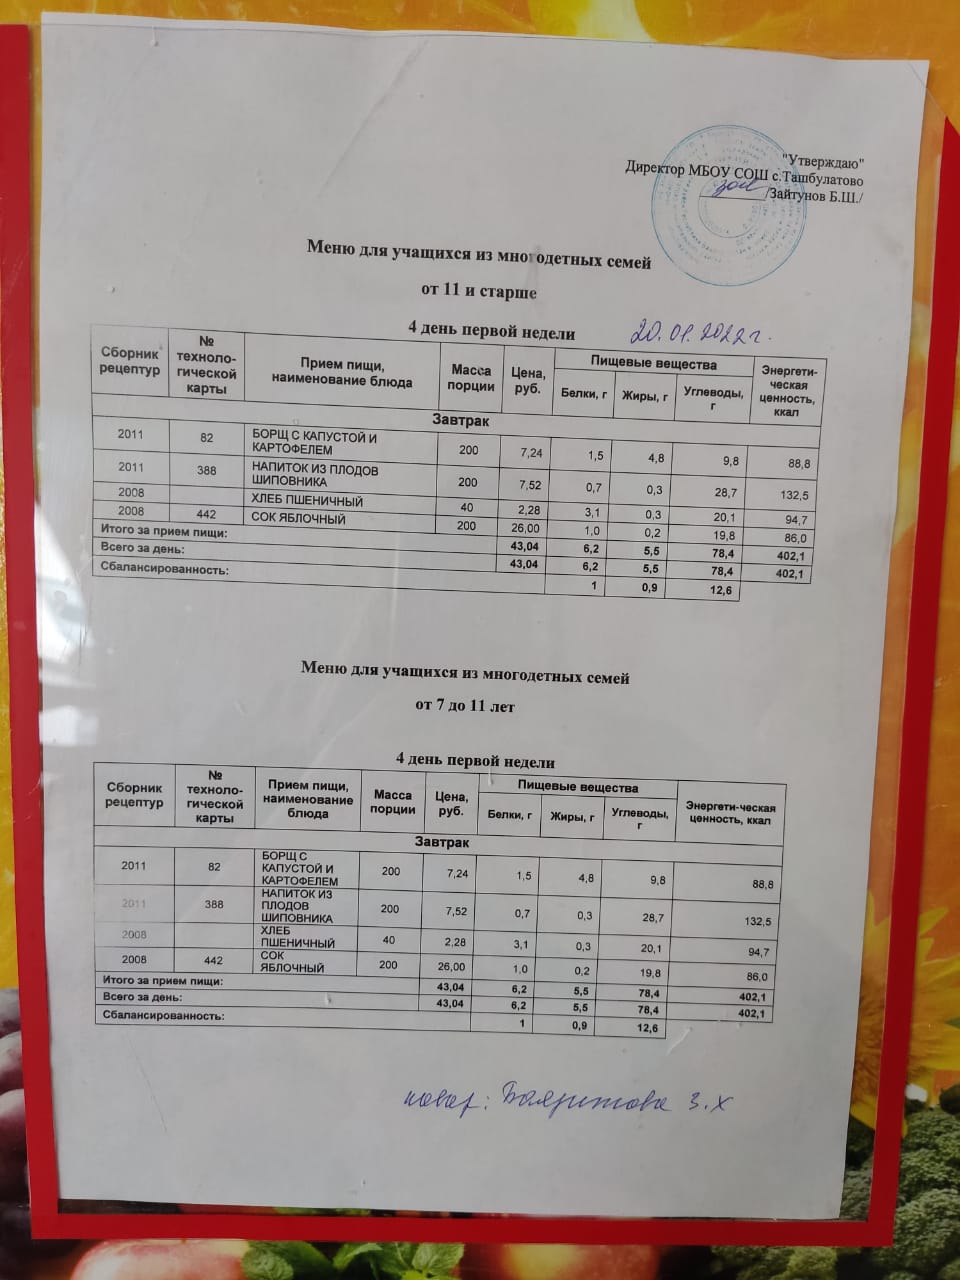 "Утверждаю"
Директор МБОУ СОШ с.Ташбулатово
/Зайтунов Б.Ш./
Меню для учащихся из многодетных семей
от 11 и старше
4 день первой недели 20.01.2022г.
Сборник рецептур № техноло-гической карты Прием пищи, наименование блюда Масса порции Цена, руб. Пищевые вещества Энергети-ческая ценность, ккал
Белки, г Жиры, г Углеводы, г
Завтрак
2011 82 БОРЩ С КАПУСТОЙ И КАРТОФЕЛЕМ 200 7,24 1,5 4,8 9,8 88,8
2011 388 НАПИТОК ИЗ ПЛОДОВ ШИПОВНИКА 200 7,52 0,7 0,3 28,7 132,5
2008 ХЛЕБ ПШЕНИЧНЫЙ 40 2,28 3,1 0,3 20,1 94,7
2008 442 СОК ЯБЛОЧНЫЙ 200 26,00 1,0 0,2 19,8 86,0
Итого за прием пищи: 43,04 6,2 5,5 78,4 402,1
Всего за день: 43,04 6,2 5,5 78,4 402,1
Сбалансированность: 1 0,9 12,6
Меню для учащихся из многодетных семей
от 7 до 11 лет
4 день первой недели
Сборник рецептур № техноло-гической карты Прием пищи, наименование блюда Масса порции Цена, руб. Пищевые вещества Энергети-ческая ценность, ккал
Белки, г Жиры, г Углеводы, г
Завтрак
2011 82 БОРЩ С КАПУСТОЙ И КАРТОФЕЛЕМ 200 7,24 1,5 4,8 9,8 88,8
2011 388 НАПИТОК ИЗ ПЛОДОВ ШИПОВНИКА 200 7,52 0,7 0,3 28,7 132,5
2008 ХЛЕБ ПШЕНИЧНЫЙ 40 2,28 3,1 0,3 20,1 94,7
2008 442 СОК ЯБЛОЧНЫЙ 200 26,00 1,0 0,2 19,8 86,0
Итого за прием пищи: 43,04 6,2 5,5 78,4 402,1
Всего за день: 43,04 6,2 5,5 78,4 402,1
Сбалансированность: 1 0,9 12,6
повар: З.Х